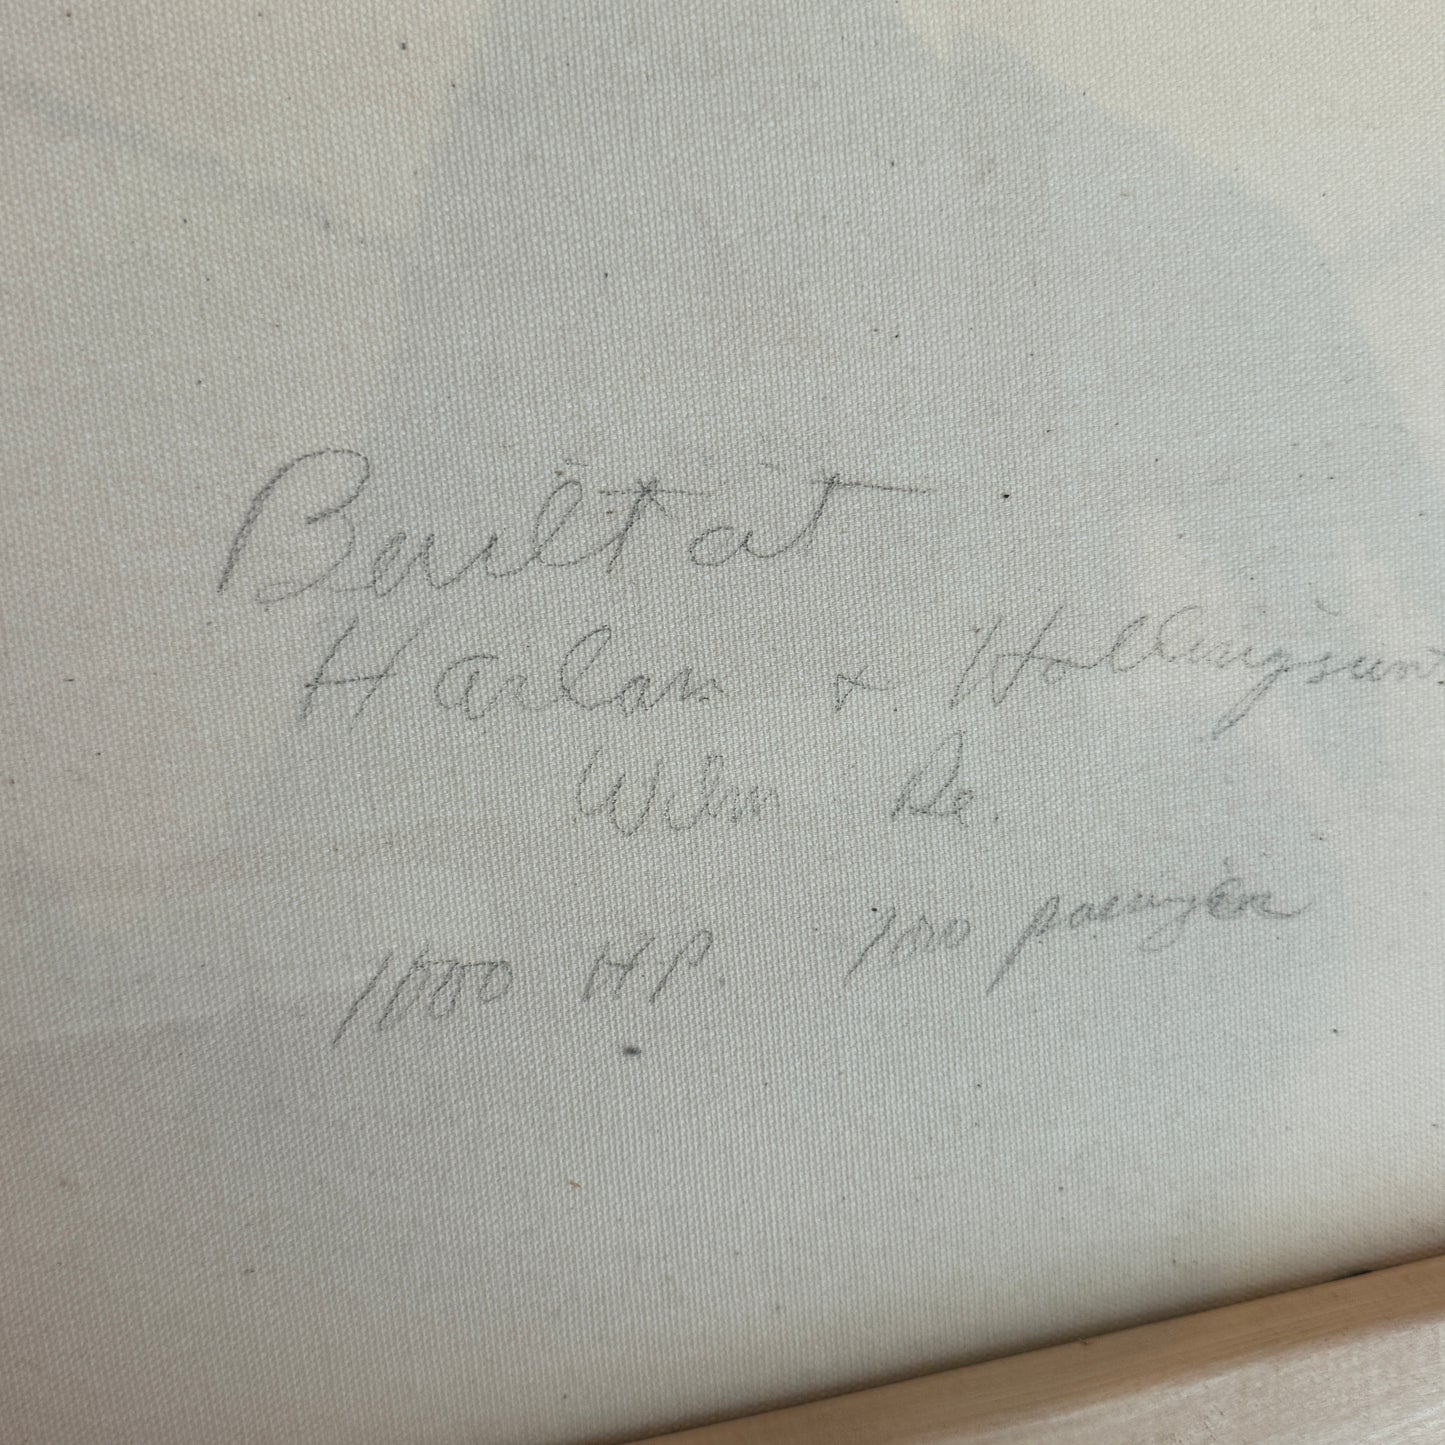 Built at
Harlan & Hollingswort
Wilm De.
1000 HP. 700 passenger